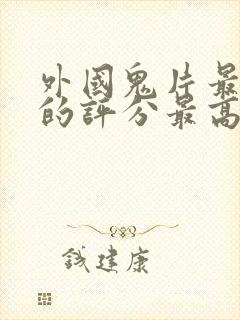 外國鬼片最
的評分最高
錢建康